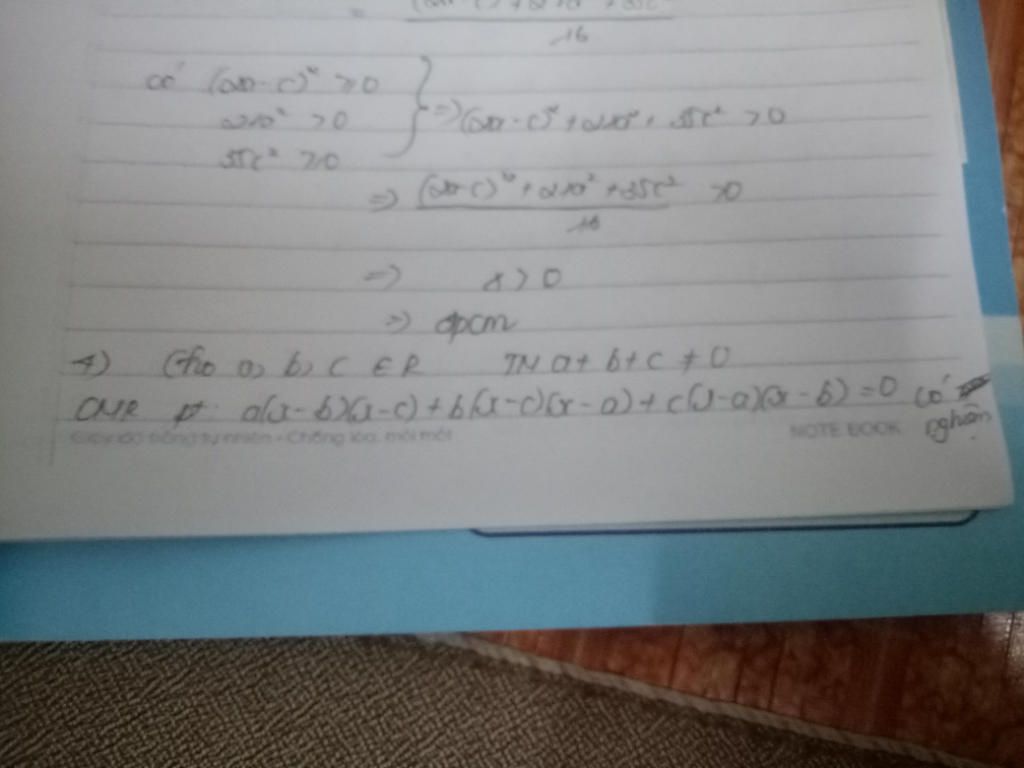 16
có (2a-c)² ≥ 0
21a² > 0
35c² ≥ 0
} => (2a-c)² + 21a² + 35c² > 0
=> (2a-c)² + 21a² + 35c² / 16 > 0
=> x > 0
=> đpcm
4) Cho a, b, c ∈ R TM a + b + c ≠ 0
CMR pt: a(x-b)(x-c) + b(x-c)(x-a) + c(x-a)(x-b) = 0 có
nghiệm
Giấy có trắng tự nhiên - Chống lóa, mỏi mắt NOTE BOOK